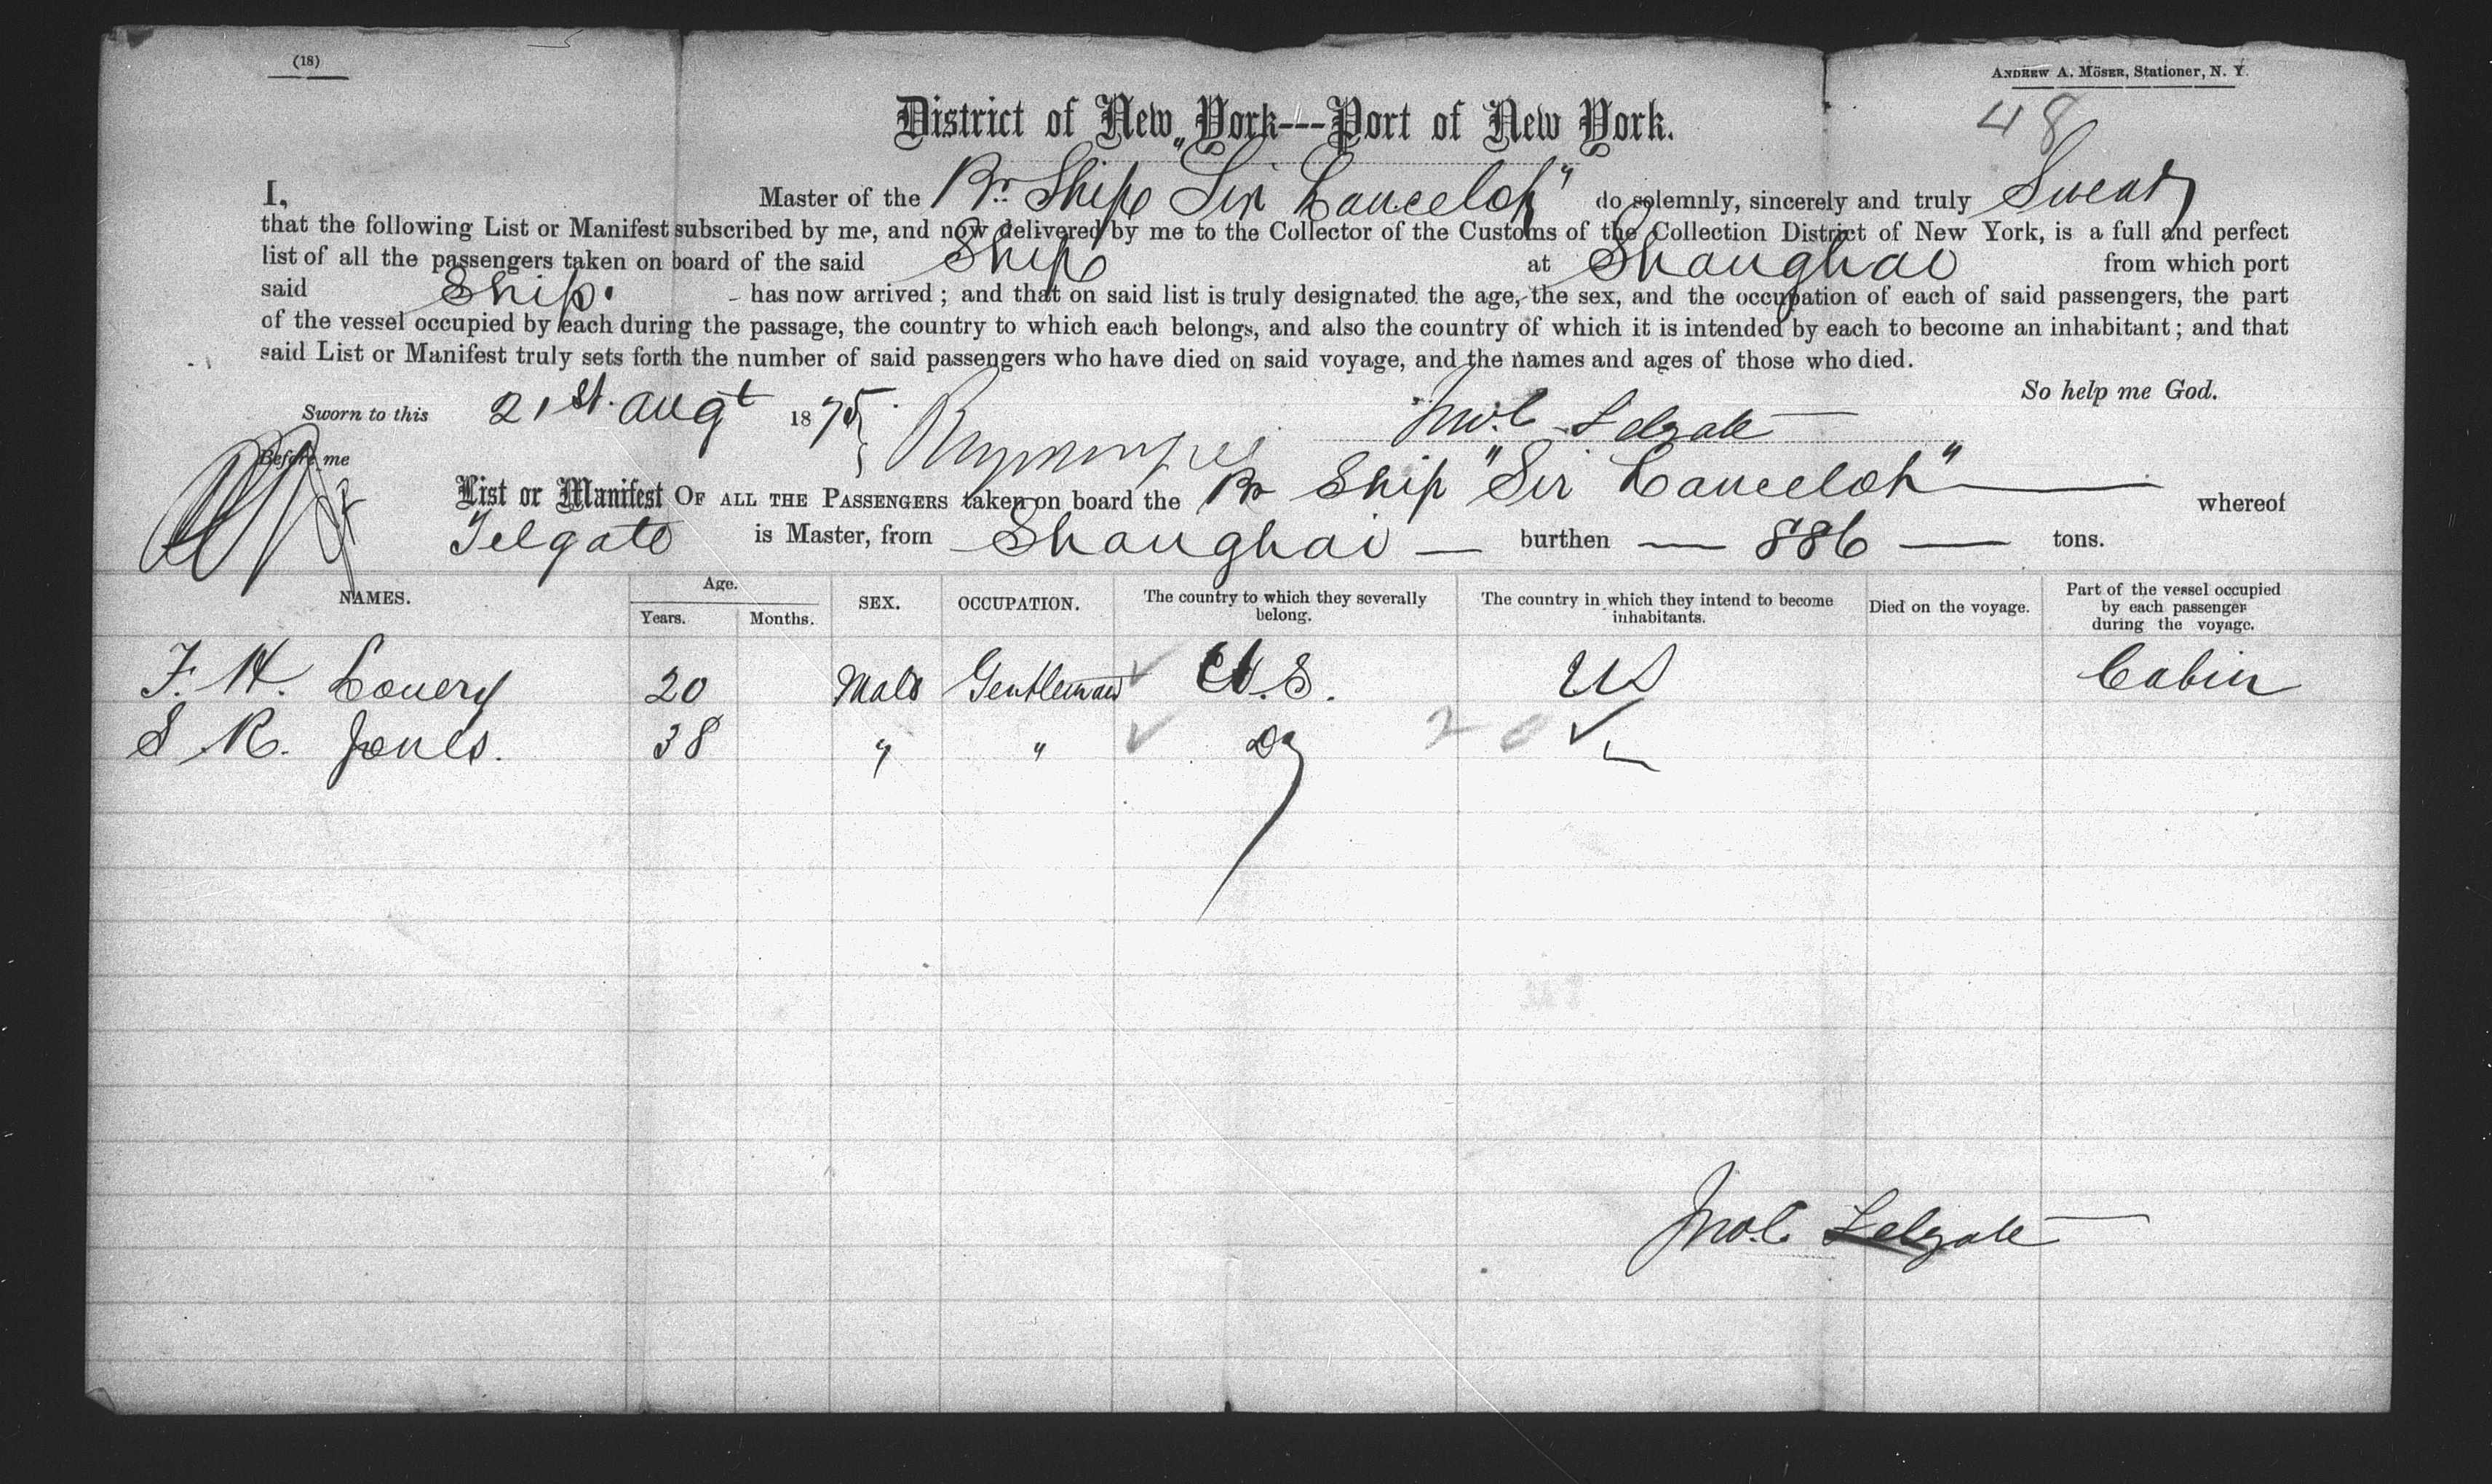 (18)
ANDREW A. MÖSER, Stationer, N. Y.
48
District of New York---Port of New York.
I, Master of the Br. Ship "Sir Lancelot" do solemnly, sincerely and truly Swear
that the following List or Manifest subscribed by me, and now delivered by me to the Collector of the Customs of the Collection District of New York, is a full and perfect
list of all the passengers taken on board of the said Ship at Shanghai from which port
said Ship. has now arrived; and that on said list is truly designated the age, the sex, and the occupation of each of said passengers, the part
of the vessel occupied by each during the passage, the country to which each belongs, and also the country of which it is intended by each to become an inhabitant; and that
said List or Manifest truly sets forth the number of said passengers who have died on said voyage, and the names and ages of those who died.
So help me God.
Sworn to this 21st. Augt 1875 Jno. C. Felgate
Before me
List or Manifest OF ALL THE PASSENGERS taken on board the Br Ship "Sir Lancelot" whereof
Felgate is Master, from Shanghai — burthen — 886 — tons.
NAMES. Age. Years. Months. SEX. OCCUPATION. The country to which they severally belong. The country in which they intend to become inhabitants. Died on the voyage. Part of the vessel occupied by each passenger during the voyage.
F. H. Lovery 20 Male Gentleman ✓ U.S. US Cabin
S R. Jones. 38 " " ✓ Do 20 ✓
Jno. C. Felgate